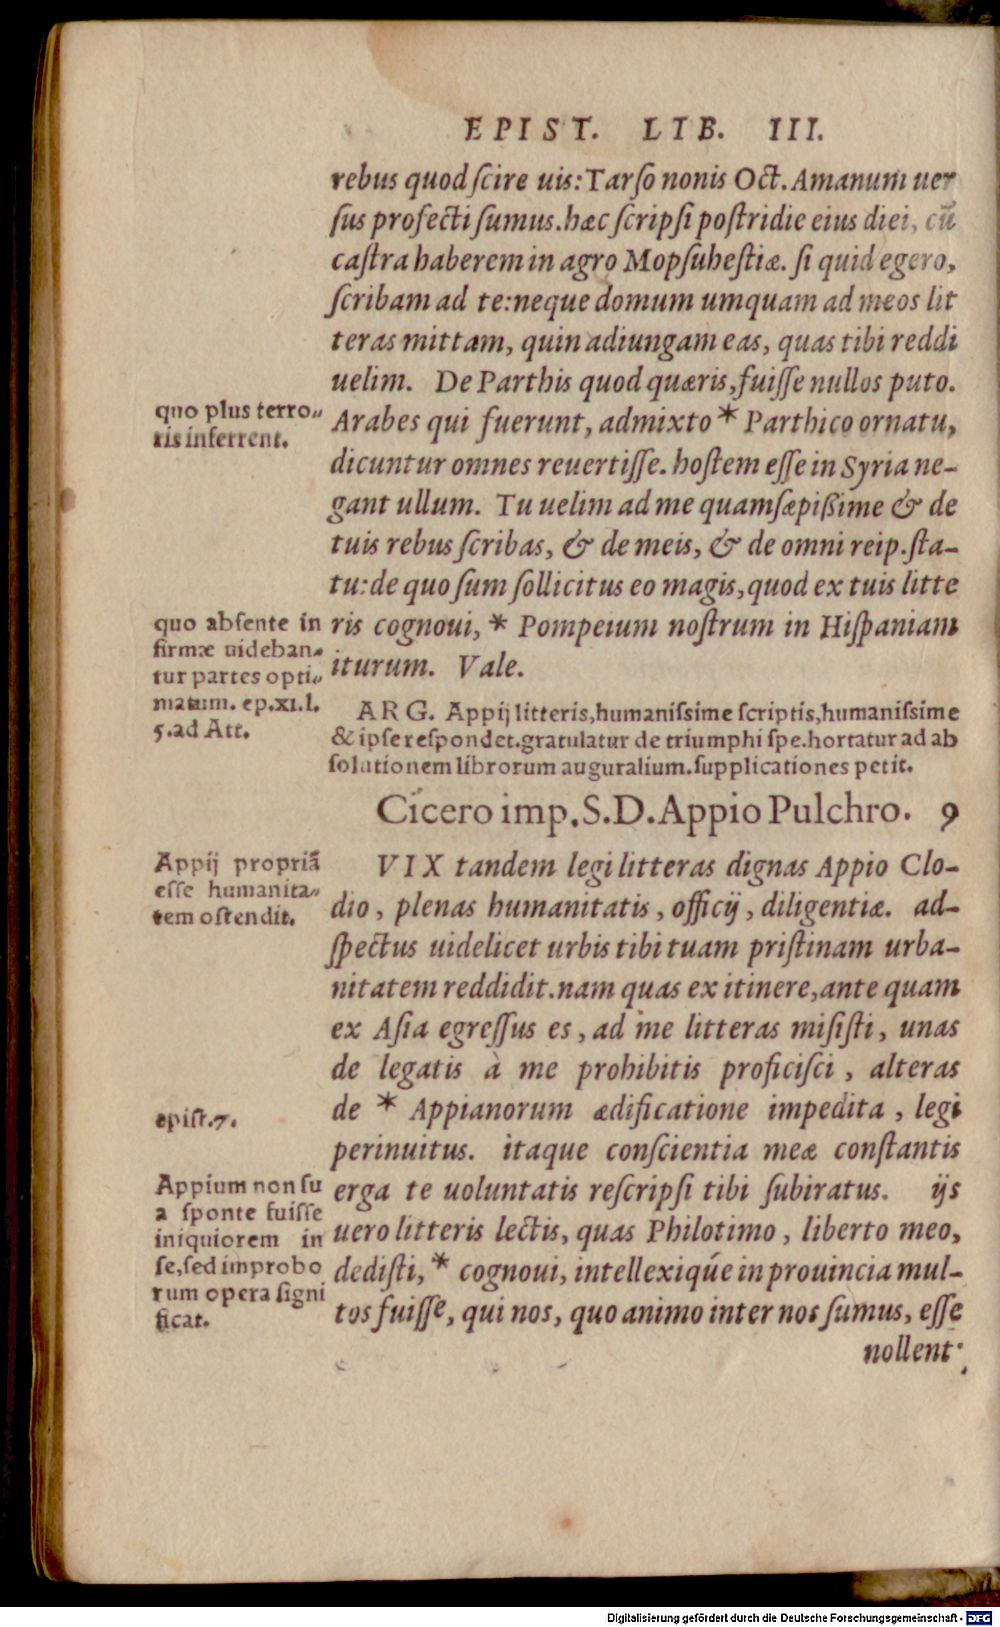 EPIST. LIB. III.
rebus quod ſcire uis: Tarſo nonis Oct. Amanum uer
ſus profecti ſumus. hæc ſcripſi poſtridie eius diei, cū
caſtra haberem in agro Mopſuheſtiæ. ſi quid egero,
ſcribam ad te: neque domum umquam ad meos lit
teras mittam, quin adiungam eas, quas tibi reddi
uelim. De Parthis quod quæris, fuiſſe nullos puto.
Arabes qui fuerunt, admixto * Parthico ornatu,
dicuntur omnes reuertiſſe. hoſtem eſſe in Syria ne-
gant ullum. Tu uelim ad me quamſæpißime & de
tuis rebus ſcribas, & de meis, & de omni reip. ſta-
tu: de quo ſum ſollicitus eo magis, quod ex tuis litte
ris cognoui, * Pompeium noſtrum in Hiſpaniam
iturum. Vale.
quo plus terro-
ris inferrent.
quo abſente in
firmæ uideban-
tur partes opti-
matum. ep.xi.l.
5.ad Att.
ARG. Appij litteris, humaniſsime ſcriptis, humaniſsime
& ipſe reſpondet. gratulatur de triumphi ſpe. hortatur ad ab
ſolutionem librorum auguralium. ſupplicationes petit.
Cicero imp. S. D. Appio Pulchro. 9
VIX tandem legi litteras dignas Appio Clo-
dio, plenas humanitatis, officij, diligentiæ. ad-
ſpectus uidelicet urbis tibi tuam priſtinam urba-
nitatem reddidit. nam quas ex itinere, ante quam
ex Aſia egreſſus es, ad me litteras miſiſti, unas
de legatis à me prohibitis proficiſci, alteras
de * Appianorum ædificatione impedita, legi
perinuitus. itaque conſcientia meæ conſtantis
erga te uoluntatis reſcripſi tibi ſubiratus. ijs
uero litteris lectis, quas Philotimo, liberto meo,
dediſti, * cognoui, intellexiq́ue in prouincia mul-
tos fuiſſe, qui nos, quo animo inter nos ſumus, eſſe
nollent:
Appij propriā
eſſe humanita-
tem oſtendit.
epiſt.7.
Appium non ſu
a ſponte fuiſſe
iniquiorem in
ſe, ſed improbo
rum opera ſigni
ficat.
Digitalisierung gefördert durch die Deutsche Forschungsgemeinschaft - DFG